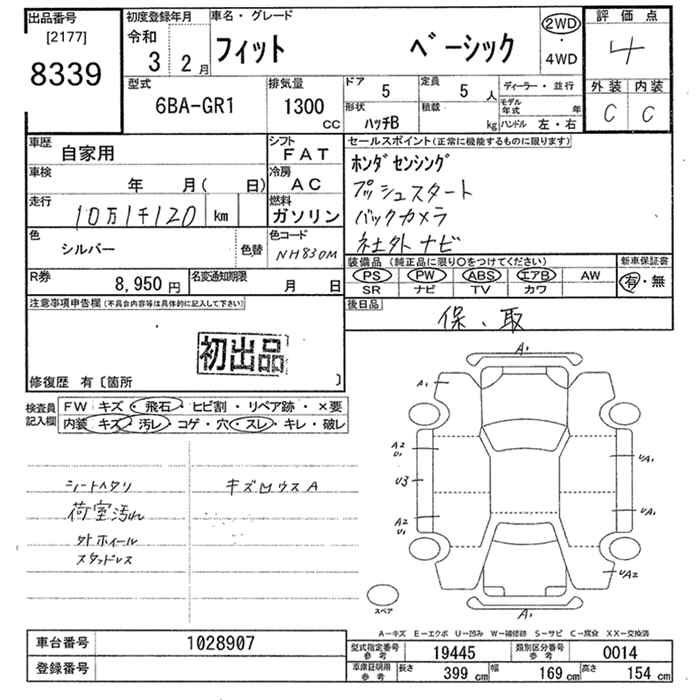 出品番号
[2177]
8339
初度登録年月
令和
3 2月
車名・グレード
フィット ベーシック
2WD
・
4WD
評価点
4
外装 内装
C C
型式
6BA-GR1
排気量
1300
CC
ドア
5
定員
5人
ディーラー・並行
形状
ハッチB
積載
kg
モデル年式 年
ハンドル 左・右
車歴
自家用
シフト
FAT
車検
年 月( 日)
冷房
AC
走行
10万1千120 km
燃料
ガソリン
色
シルバー
色替
色コード
NH830M
R券
8,950 円
名変通知期限
月 日
セールスポイント(正常に機能するものに限ります)
ホンダセンシング
プッシュスタート
バックカメラ
社外ナビ
装備品(純正品に限り〇をつけてください)
PS PW ABS エアB AW
SR ナビ TV カワ
新車保証書
有・無
後日品
保、取
注意事項申告欄(不具合内容等は具体的に記入して下さい)
初出品
修復歴 有〔箇所 〕
検査員
記入欄
FW キズ・飛石・ヒビ割・リペア跡・×要
内装 キズ・汚レ・コゲ・穴・スレ・キレ・破レ
シートヘタリ
荷室汚れ
外ホイール
スタッドレス
A1
A1
A2
U1
U3
A2
U1
UA1
UA1
UA2
A1
スペア
A－キズ E－エクボ U－凹み W－補修跡 S－サビ C－腐食 XX－交換済
車台番号
1028907
登録番号
型式指定番号
参考
19445
類別区分番号
参考
0014
車庫証明用
参考
長さ
399 cm
幅
169 cm
高さ
154 cm